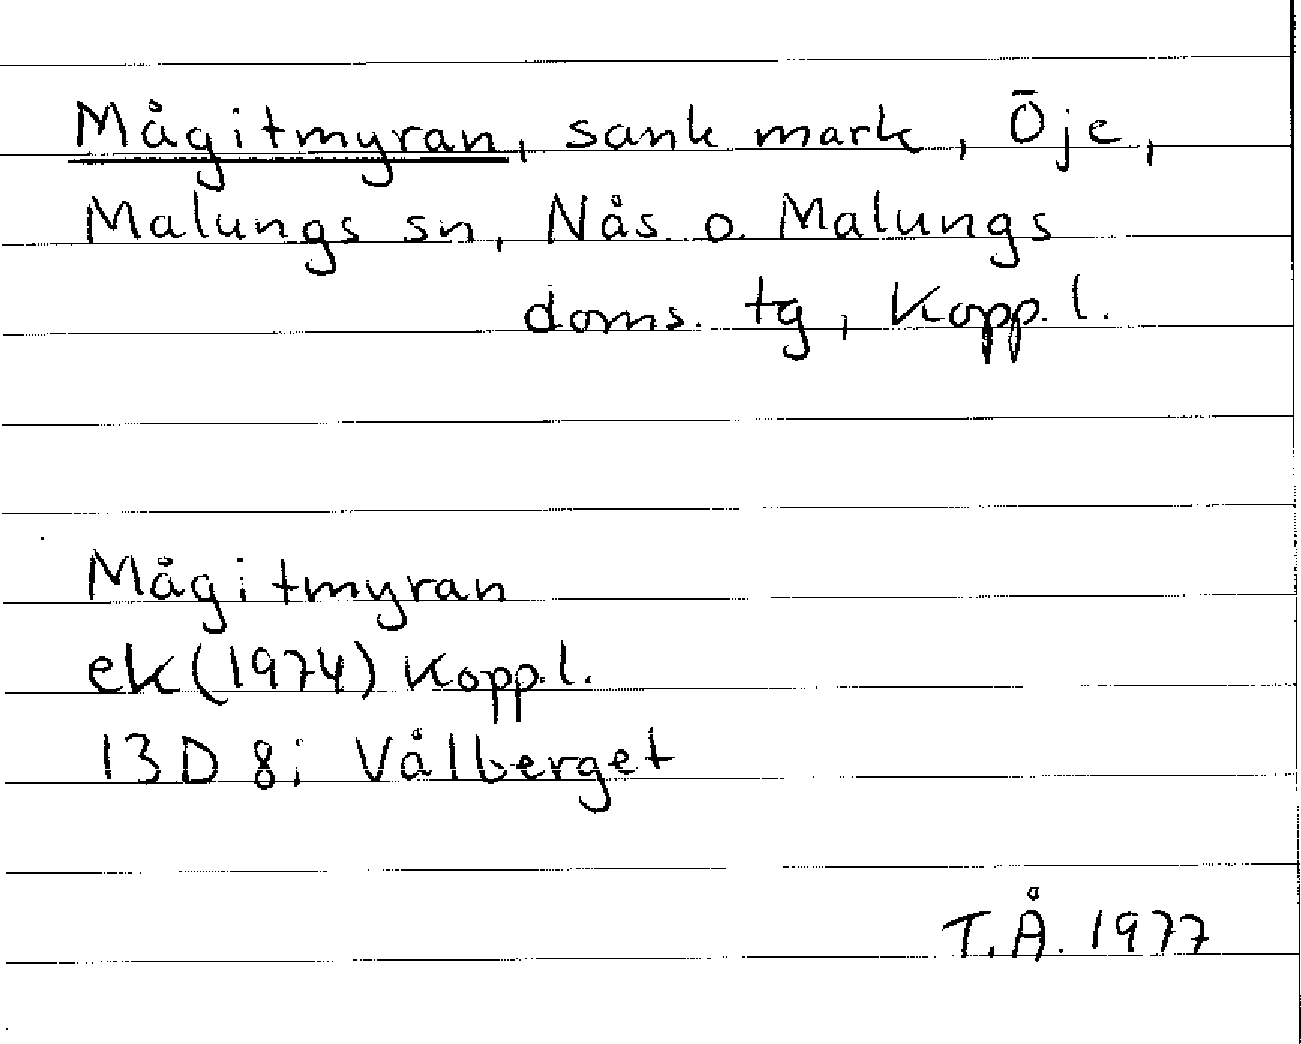 Mågitmyran, sank mark, Öje,
Malungs sn, Nås o. Malungs
doms. tg, Kopp. l.
Mågitmyran
ek (1974) Kopp.l.
13D 8i Vålberget
T.Å. 1977